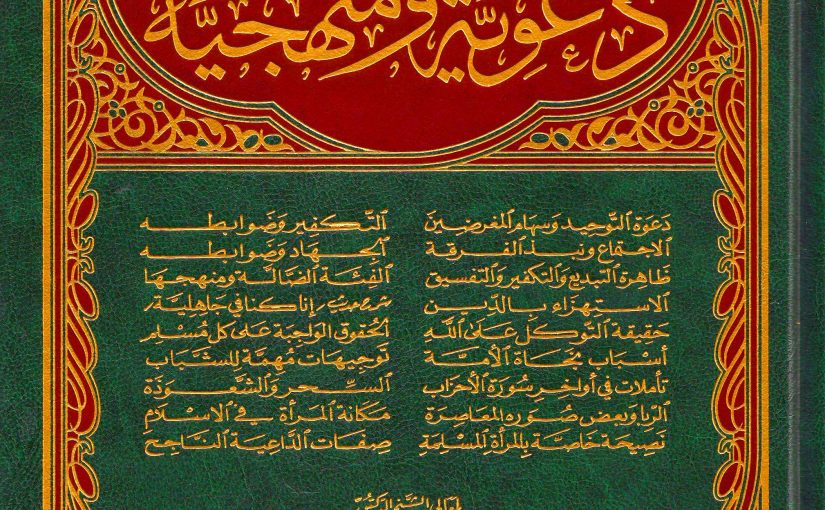 دَعَوِيَّة وَمَنْهَجِيَّة
دَعوَة التَّوحِيد وَسِهَام المُغرِضِينَ
الاجتِمَاع ونَبذ الفُرقَة
ظَاهِرَة التَّبدِيع وَالتَّكفِير وَالتَّفسِيق
الاستِهزَاء بِالدِّين
حَقِيقَة التَّوَكُّل عَلَى اللَّه
أسبَاب نَجَاة الأُمَّة
تأمُّلات في أواخِر سُورَة الأحزَاب
الرِّبا وَبعض صُوَره المعَاصِرَة
نَصِيحَة خَاصَّة بِالمرأة المُسلِمَة
التَّكفِير وَضَوَابطه
الجِهَاد وَضَوَابطه
الفِئَة الضَّالَّة وَمَنهجهَا
شرح حديث إنَّا كنَّا في جَاهِلِيَّة
الحُقُوق الوَاجِبَة عَلى كل مُسلِم
تَوجِيهَات مُهِمَّة لِلشَّبَاب
السِّحر وَالشَّعوَذَة
مَكَانَة المَرأة في الإسلَام
صِفَات الدَّاعِيَة النَّاجح
لمعالي الشيخ الدكتور